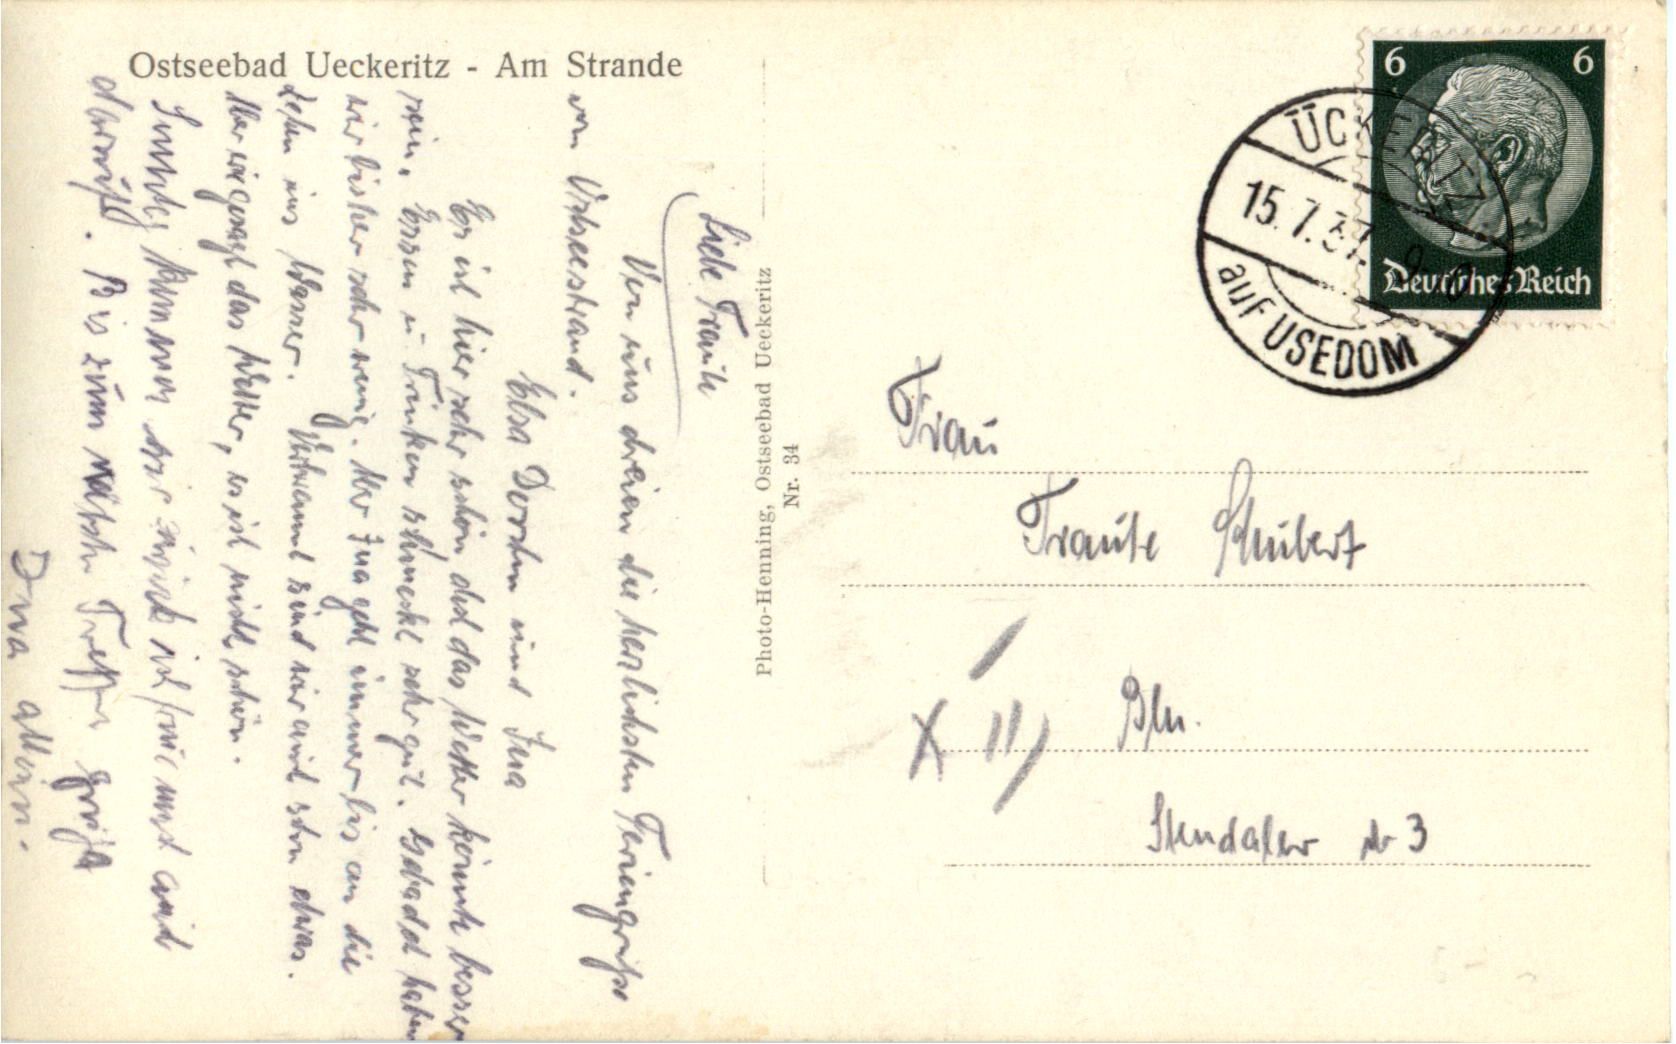 Ostseebad Ueckeritz - Am Strande
Liebe Traute
Von uns dreien die herzlichsten Feriengrüße
vom Ostseestrand.
Elsa Dorten und Ina
Es ist hier sehr schön das Wetter könnte besser
sein. Essen u Trinken schmeckt sehr gut. Gebadet haben
wir bisher sehr wenig. Ina geht immer bis an die
ins Wasser. Verbrannt sind wir auch schon etwas.
Aber wie gesagt das Wetter, es ist nicht schön.
kommen wir zurück und auch
. Bis zum nächsten Treffen grüßt
Photo-Henning, Ostseebad Ueckeritz
Nr. 34
6 6
Deutsches Reich
ÜCKERITZ
15.7.37.
auf USEDOM
Frau
Traute Schubert
Bln.
Stendaler str 3